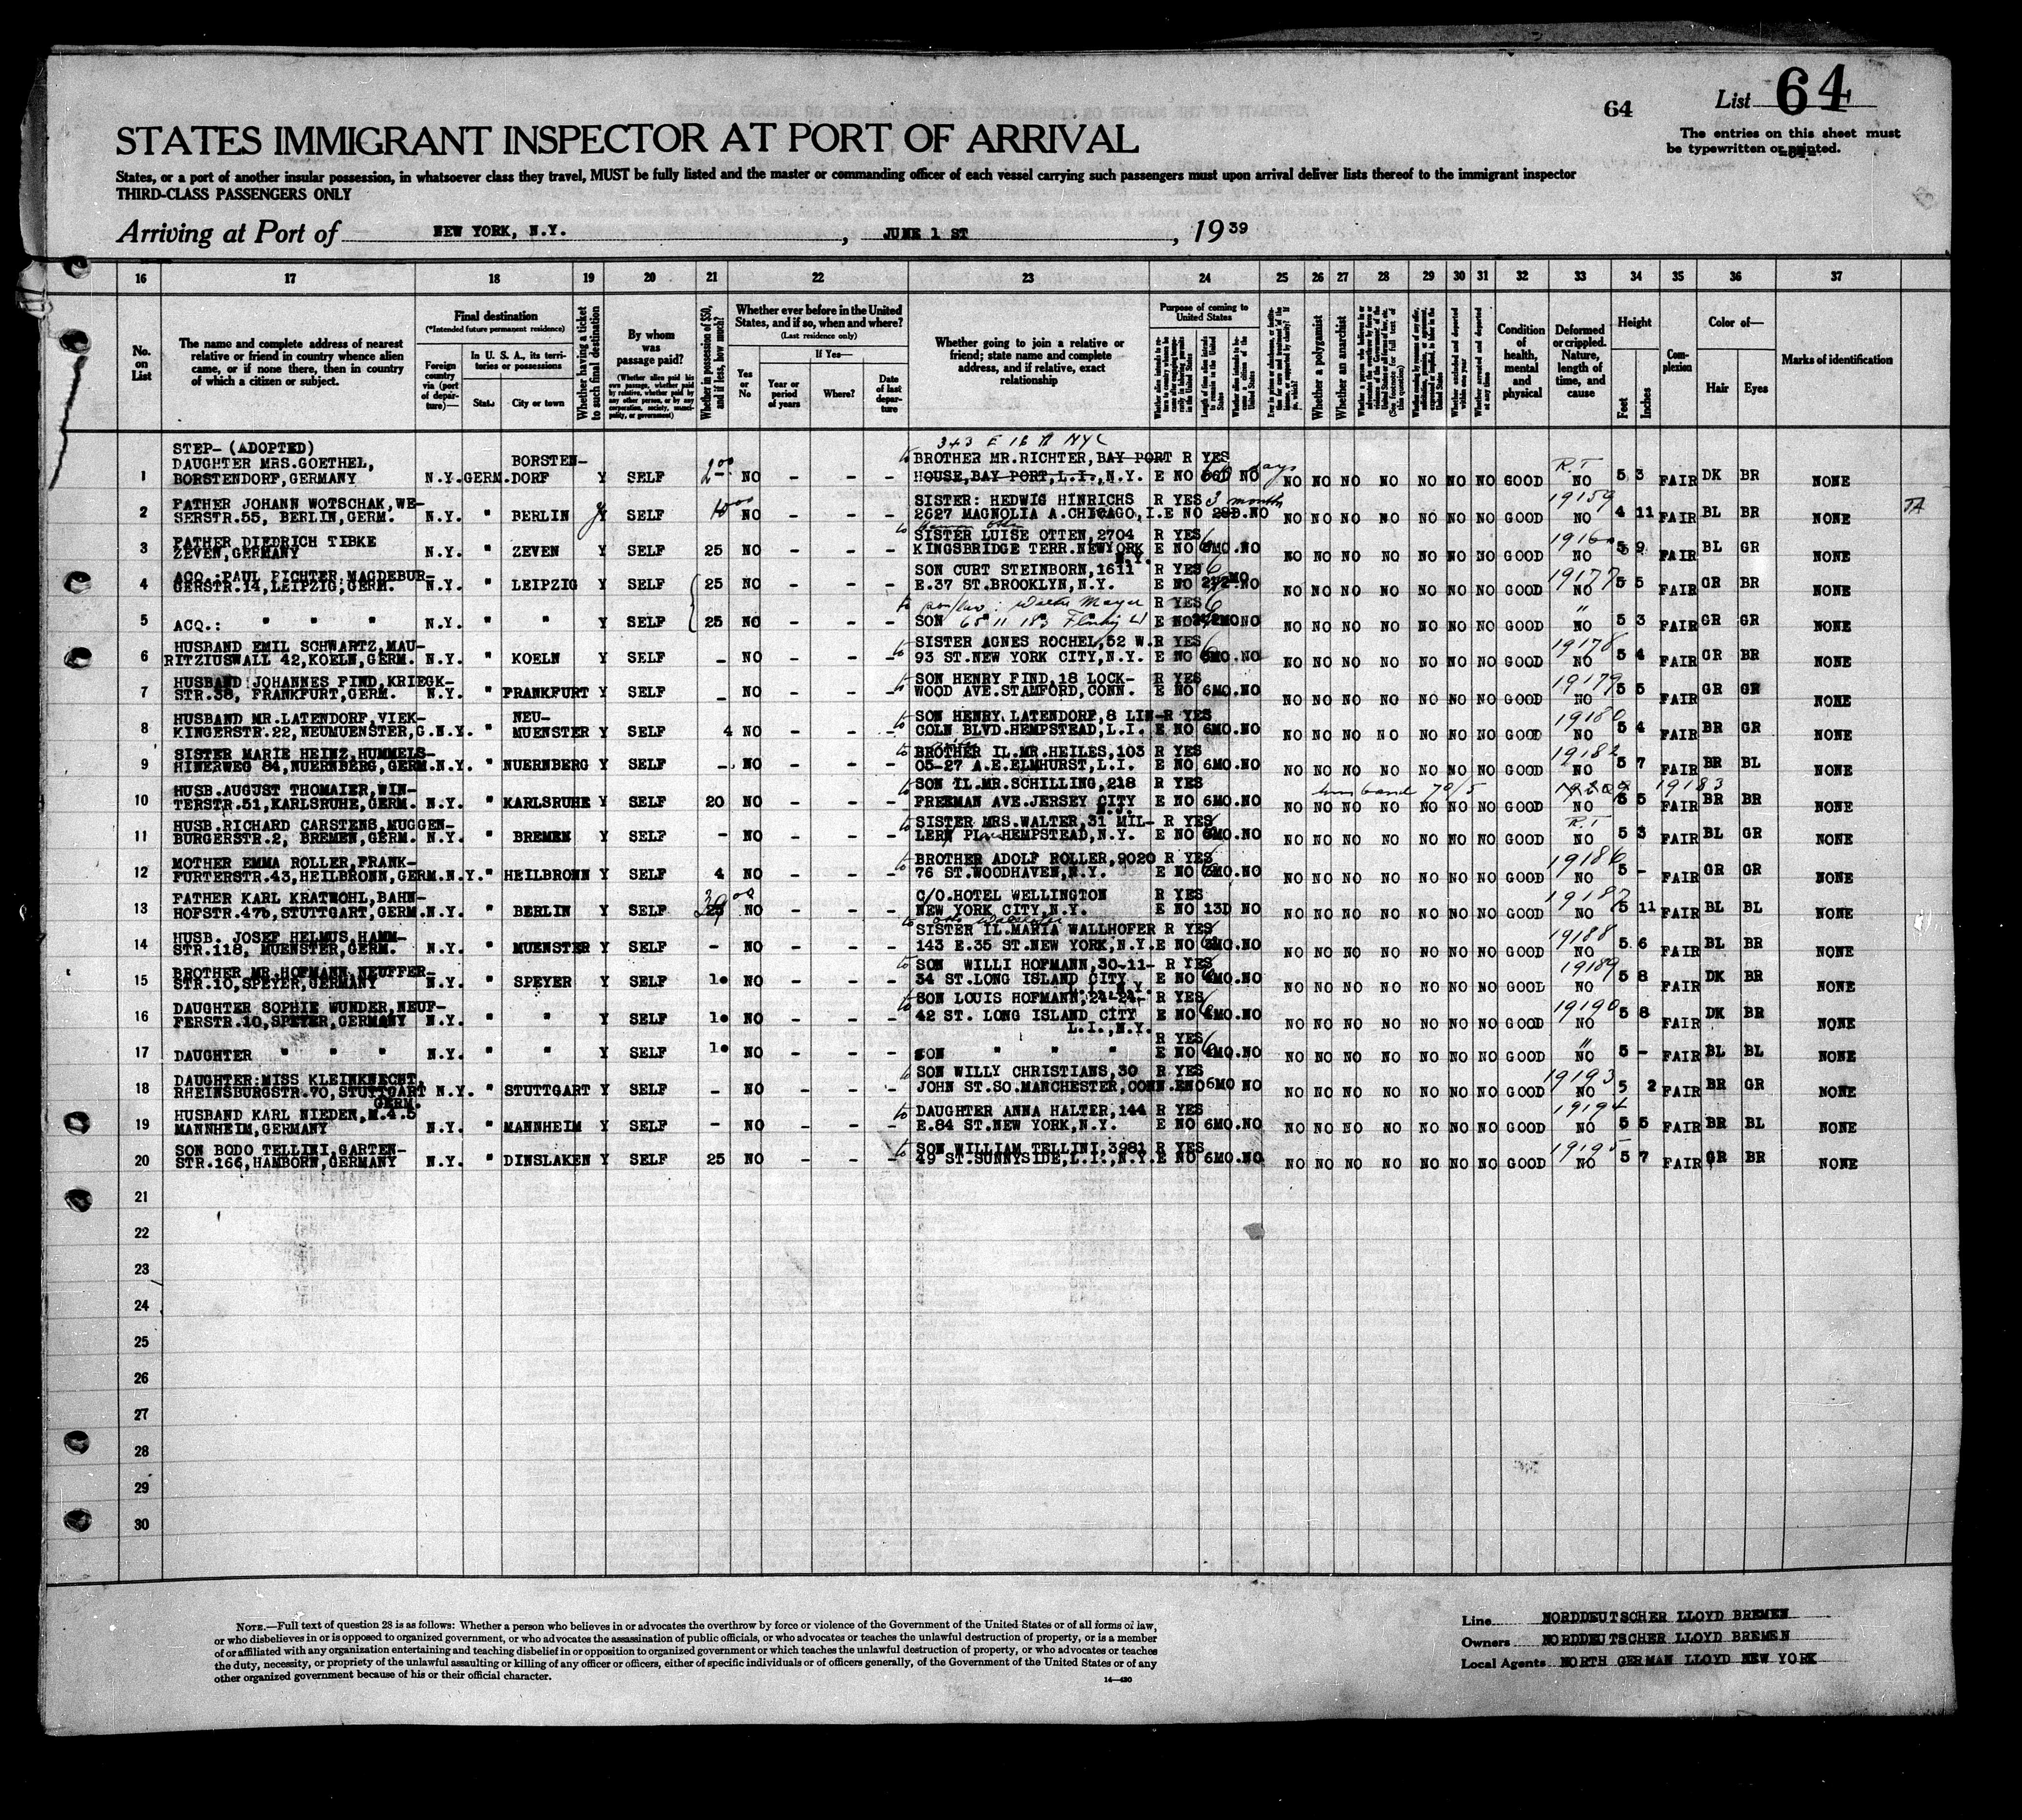 64
List 64
The entries on this sheet must
be typewritten or printed.
STATES IMMIGRANT INSPECTOR AT PORT OF ARRIVAL
States, or a port of another insular possession, in whatsoever class they travel, MUST be fully listed and the master or commanding officer of each vessel carrying such passengers must upon arrival deliver lists thereof to the immigrant inspector
THIRD-CLASS PASSENGERS ONLY
Arriving at Port of NEW YORK, N.Y. , JUNE 1 ST , 1939
16 17 18 19 20 21 22 23 24 25 26 27 28 29 30 31 32 33 34 35 36 37
No. on List
The name and complete address of nearest relative or friend in country whence alien came, or if none there, then in country of which a citizen or subject.
Final destination
(*Intended future permanent residence)
Foreign country via (port of departure)—
In U. S. A., its territories or possessions
State
City or town
Whether having a ticket to such final destination
By whom was passage paid?
(Whether alien paid his own passage, whether paid by relative, whether paid by any other person, or by any corporation, society, municipality, or government)
Whether in possession of $50, and if less, how much?
Whether ever before in the United States, and if so, when and where?
(Last residence only)
Yes or No
If Yes—
Year or period of years
Where?
Date of last departure
Whether going to join a relative or friend; state name and complete address, and if relative, exact relationship
Purpose of coming to United States
Whether a polygamist
Whether an anarchist
Condition of health, mental and physical
Deformed or crippled. Nature, length of time, and cause
Height
Feet
Inches
Complexion
Color of—
Hair
Eyes
Marks of identification
343 E 16 NYC
STEP- (ADOPTED) BORSTEN- BROTHER MR.RICHTER, BAY PORT R YES
DAUGHTER MRS.GOETHEL,
1 BORSTENDORF, GERMANY N.Y. GERM. DORF Y SELF NO HOUSE, BAY PORT, L.I., N.Y. E NO 60 NO days NO NO NO NO NO NO NO GOOD R.T NO 5 3 FAIR DK BR NONE
FATHER JOHANN WOTSCHAK, WE- SISTER: HEDWIG HINRICHS R YES 3 months
2 SERSTR.55, BERLIN, GERM. N.Y. " BERLIN Y SELF NO - - - 2627 MAGNOLIA A.CHICAGO, I. E NO NO NO NO NO NO NO NO NO GOOD 19159 NO 4 11 FAIR BL BR NONE
FATHER DIEDRICH TIBKE SISTER LUISE OTTEN, 2704 R YES
3 ZEVEN, GERMANY N.Y. " ZEVEN Y SELF 25 NO - - - KINGSBRIDGE TERR.NEWYORK N.Y. E NO 6MO.NO NO NO NO NO NO NO NO GOOD NO 5 9 FAIR BL GR NONE
ACQ.:PAUL RICHTER MAGDEBUR- SON CURT STEINBORN, 1611 R YES 6
4 GERSTR.14, LEIPZIG, GERM. N.Y. " LEIPZIG Y SELF 25 NO - - - E.37 ST.BROOKLYN, N.Y. E NO NO NO NO NO NO NO NO NO GOOD 19177 NO 5 5 FAIR GR BR NONE
R YES 6
5 ACQ.: " " " N.Y. " " Y SELF 25 NO - - - SON E NO NO NO NO NO NO NO NO NO GOOD " NO 5 3 FAIR GR GR NONE
HUSBAND EMIL SCHWARTZ, MAU- SISTER AGNES ROCHEL, 52 W. R YES
6 RITZIUSWALL 42, KOELN, GERM. N.Y. " KOELN Y SELF - NO - - - 93 ST.NEW YORK CITY, N.Y. E NO MO.NO NO NO NO NO NO NO NO GOOD 19178 NO 5 4 FAIR GR BR NONE
HUSBAND JOHANNES FIND, KRIEGK- SON HENRY FIND, 18 LOCK- R YES
7 STR.38, FRANKFURT, GERM. N.Y. " FRANKFURT Y SELF - NO - - - WOOD AVE.STAMFORD, CONN. E NO 6MO.NO NO NO NO NO NO NO NO GOOD 19179 NO 5 5 FAIR GR GN NONE
HUSBAND MR.LATENDORF, VIEK- NEU- SON HENRY LATENDORF, 8 LIN- R YES
8 KINGERSTR.22, NEUMUENSTER, G. N.Y. " MUENSTER Y SELF 4 NO - - - COLN BLVD.HEMPSTEAD, L.I. E NO 6MO.NO NO NO NO NO NO NO NO GOOD 19180 NO 5 4 FAIR BR GR NONE
SISTER MARIE HEINZ, HUMMELS- BROTHER IL.MR.HEILES, 103 R YES
9 HINERWEG 84, NUERNBERG, GERM. N.Y. " NUERNBERG Y SELF - NO - - - 05-27 A.E.ELMHURST, L.I. E NO 6MO.NO NO NO NO NO NO NO NO GOOD 19182 NO 5 7 FAIR BR BL NONE
HUSB.AUGUST THOMAIER, WIN- SON IL.MR.SCHILLING, 218 R YES husband 70/5 19183
10 TERSTR.51, KARLSRUHE, GERM. N.Y. " KARLSRUHE Y SELF 20 NO - - - FREEMAN AVE.JERSEY CITY N.J. E NO 6MO.NO NO NO NO NO NO NO NO GOOD NO 5 5 FAIR BR BR NONE
HUSB.RICHARD CARSTENS, MUGGEN- SISTER MRS.WALTER, 31 MIL- R YES
11 BURGERSTR.2, BREMEN, GERM. N.Y. " BREMEN Y SELF - NO - - - LERN PL. HEMPSTEAD, N.Y. E NO MO.NO NO NO NO NO NO NO NO GOOD R.T NO 5 3 FAIR BL GR NONE
MOTHER EMMA ROLLER, FRANK- BROTHER ADOLF ROLLER, 9020 R YES
12 FURTERSTR.43, HEILBRONN, GERM. N.Y. " HEILBRONN Y SELF 4 NO - - - 76 ST.WOODHAVEN, N.Y. E NO MO.NO NO NO NO NO NO NO NO GOOD 19186 NO 5 - FAIR GR GR NONE
FATHER KARL KRATWOHL, BAHN- C/O.HOTEL WELLINGTON R YES
13 HOFSTR.47b, STUTTGART, GERM. N.Y. " BERLIN Y SELF NO - - - NEW YORK CITY, N.Y. E NO 13D NO NO NO NO NO NO NO NO GOOD 19187 NO 5 11 FAIR BL BL NONE
HUSB. JOSEF HELMUS, HAMM- SISTER IL.MARIA WALLHOFER R YES
14 STR.118, MUENSTER, GERM. N.Y. " MUENSTER Y SELF - NO - - - 143 E.35 ST.NEW YORK, N.Y. E NO MO.NO NO NO NO NO NO NO NO GOOD 19188 NO 5 6 FAIR BL BR NONE
BROTHER MR.HOFMANN, NEUFFER- SON WILLI HOFMANN, 30-11- R YES
15 STR.10, SPEYER, GERMANY N.Y. " SPEYER Y SELF 10 NO - - - 34 ST.LONG ISLAND CITY E NO MO.NO NO NO NO NO NO NO NO GOOD 19189 NO 5 8 FAIR DK BR NONE
DAUGHTER SOPHIE WUNDER, NEUF- SON LOUIS HOFMANN, 24-24- R YES
16 FERSTR.10, SPEYER, GERMANY N.Y. " " Y SELF 10 NO - - - 42 ST. LONG ISLAND CITY L.I., N.Y. E NO MO.NO NO NO NO NO NO NO NO GOOD 19190 NO 5 8 FAIR DK BR NONE
R YES
17 DAUGHTER " " " N.Y. " " Y SELF 10 NO - - - SON " " " E NO MO.NO NO NO NO NO NO NO NO GOOD " NO 5 - FAIR BL BL NONE
DAUGHTER:MISS KLEINKNECHT, SON WILLY CHRISTIANS, 30 R YES
18 RHEINSBURGSTR.70, STUTTGART GERM. N.Y. " STUTTGART Y SELF - NO - - - JOHN ST.SO.MANCHESTER, CONN. E NO 6MO NO NO NO NO NO NO NO NO GOOD 19193 NO 5 2 FAIR BR GR NONE
HUSBAND KARL NIEDEN, M.4.5 DAUGHTER ANNA HALTER, 144 R YES
19 MANNHEIM, GERMANY N.Y. " MANNHEIM Y SELF - NO - - - E.84 ST.NEW YORK, N.Y. E NO 6MO.NO NO NO NO NO NO NO NO GOOD 19194 NO 5 5 FAIR BR BL NONE
SON BODO TELLINI, GARTEN- SON WILLIAM TELLINI, 3981 R YES
20 STR.166, HAMBORN, GERMANY N.Y. " DINSLAKEN Y SELF 25 NO - - - 49 ST.SUNNYSIDE, L.I., N.Y. E NO 6MO.NO NO NO NO NO NO NO NO GOOD 19195 NO 5 7 FAIR GR BR NONE
21
22
23
24
25
26
27
28
29
30
NOTE.—Full text of question 28 is as follows: Whether a person who believes in or advocates the overthrow by force or violence of the Government of the United States or of all forms of law,
or who disbelieves in or is opposed to organized government, or who advocates the assassination of public officials, or who advocates or teaches the unlawful destruction of property, or is a member
of or affiliated with any organization entertaining and teaching disbelief in or opposition to organized government or which teaches the unlawful destruction of property, or who advocates or teaches
the duty, necessity, or propriety of the unlawful assaulting or killing of any officer or officers, either of specific individuals or of officers generally, of the Government of the United States or of any
other organized government because of his or their official character.
14—430
Line NORDDEUTSCHER LLOYD BREMEN
Owners NORDDEUTSCHER LLOYD BREMEN
Local Agents NORTH GERMAN LLOYD NEW YORK